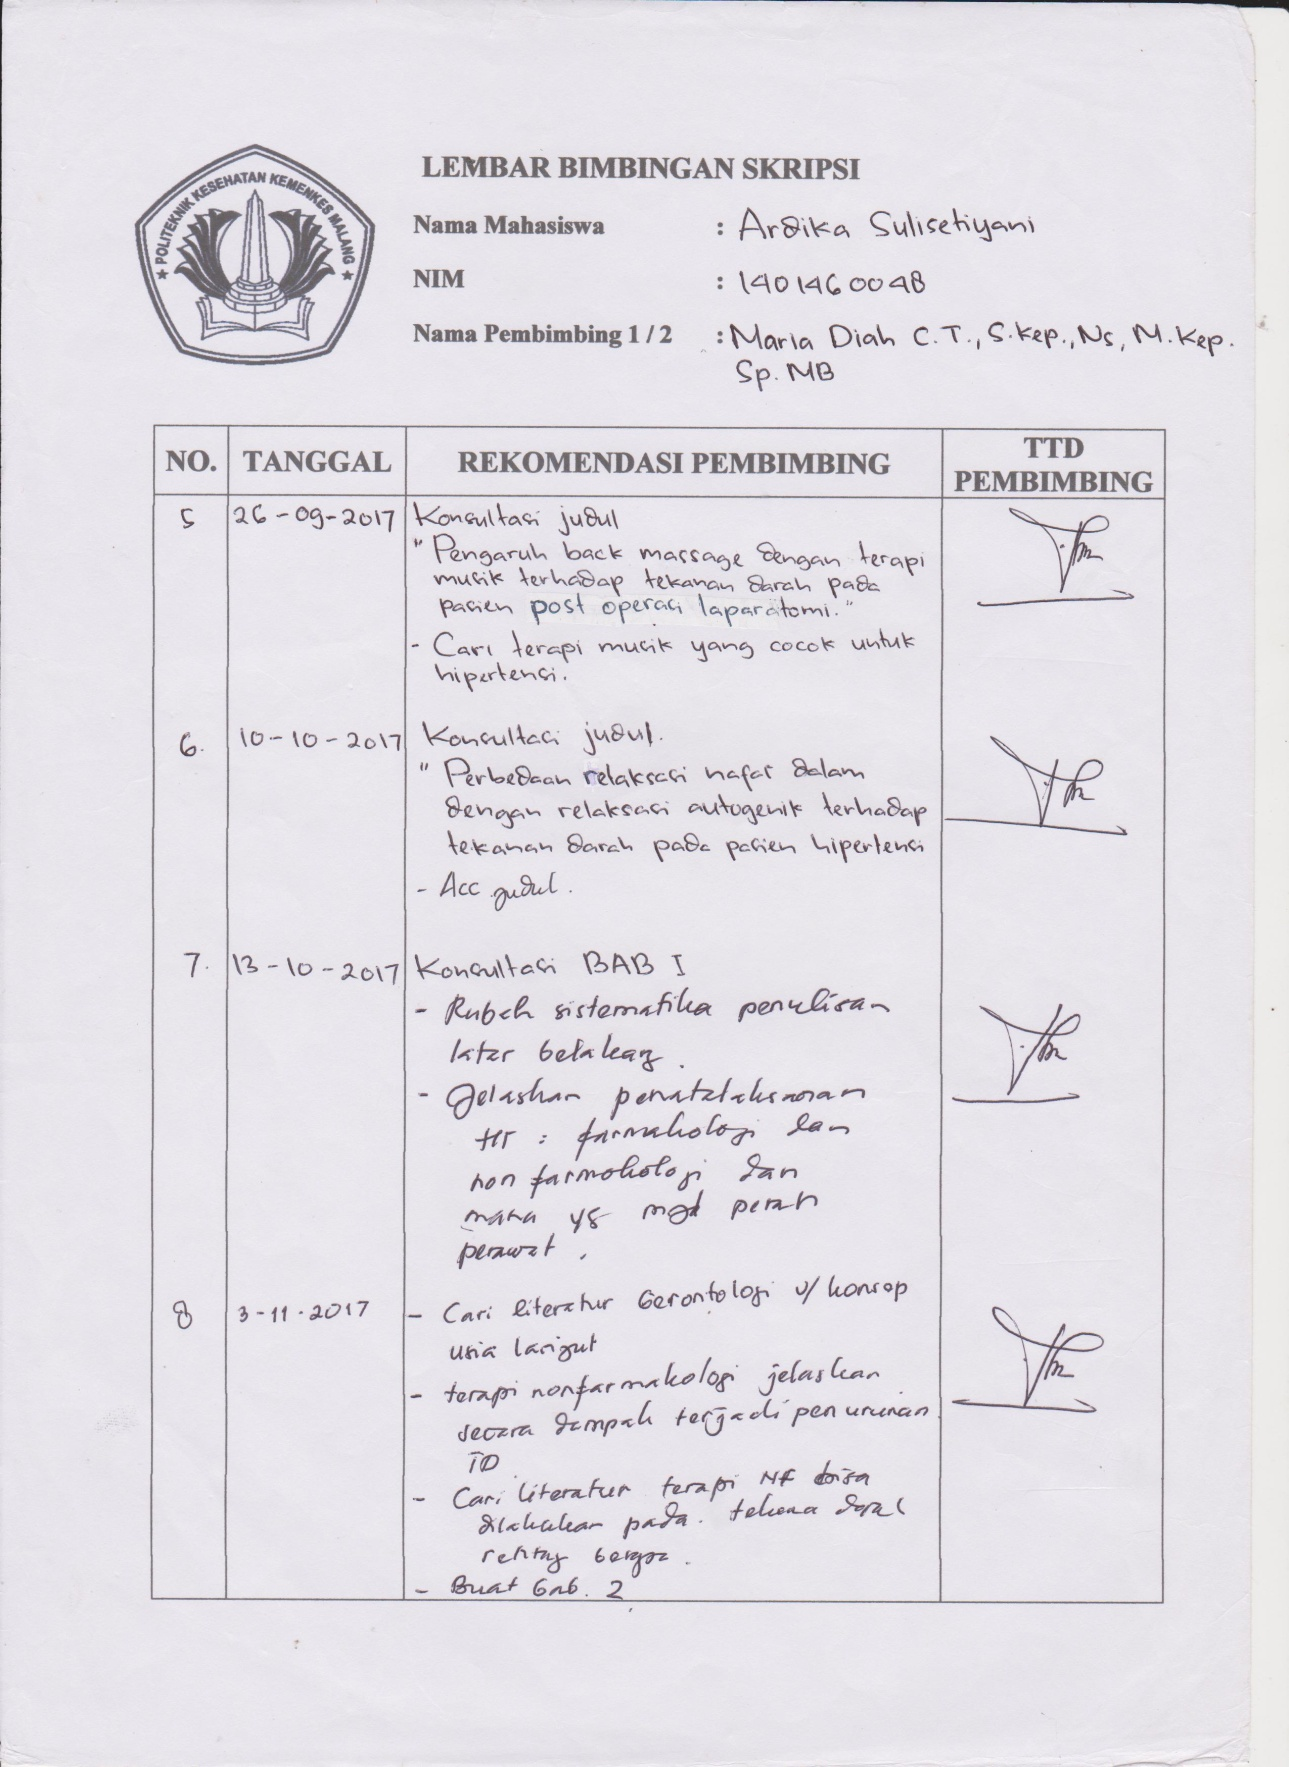 POLITEKNIK KESEHATAN KEMENKES MALANG
LEMBAR BIMBINGAN SKRIPSI
Nama Mahasiswa : Ardika Sulisetiyani
NIM : 1401460048
Nama Pembimbing 1 / 2 : Maria Diah C.T., S.Kep., Ns, M.Kep.
Sp. MB
NO. TANGGAL REKOMENDASI PEMBIMBING TTD PEMBIMBING
5 26-09-2017 Konsultasi judul
" Pengaruh back massage dengan terapi
musik terhadap tekanan darah pada
pasien post operasi laparatomi."
- Cari terapi musik yang cocok untuk
hipertensi.
6. 10-10-2017 Konsultasi judul.
" Perbedaan relaksasi nafas dalam
dengan relaksasi autogenik terhadap
tekanan darah pada pasien hipertensi
- Acc judul.
7. 13-10-2017 Konsultasi BAB I
- Rubah sistematika penulisan
latar belakang.
- Jelaskan penatalaksanaan
HT : farmakologi dan
non farmakologi dan
mana yg mjd peran
perawat.
8 3-11-2017 - Cari literatur Gerontologi u/ konsep
usia lanjut
- terapi nonfarmakologi jelaskan
secara dampak terjadi penurunan
TD
- Cari literatur terapi NF bisa
dilakukan pada
- Buat bab. 2